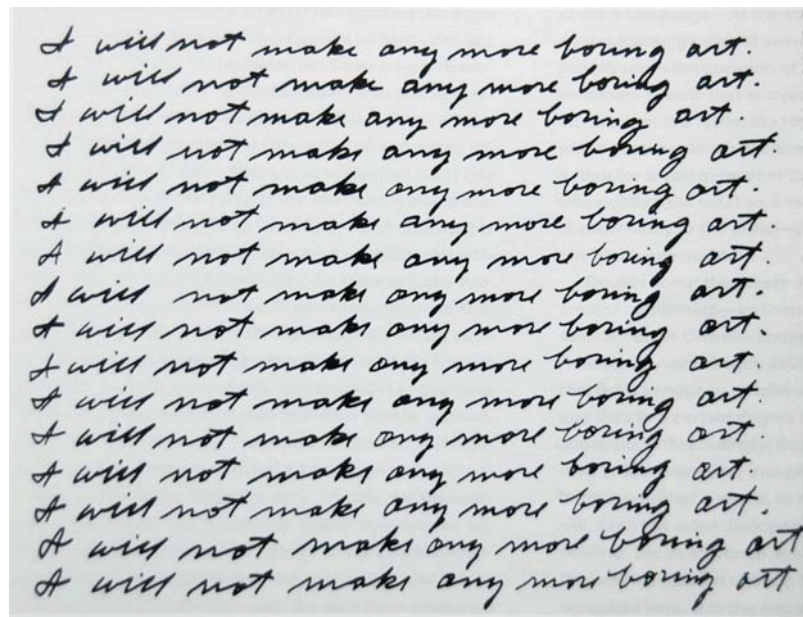 I will not make any more boring art.
I will not make any more boring art.
I will not make any more boring art.
I will not make any more boring art.
I will not make any more boring art.
I will not make any more boring art.
I will not make any more boring art.
I will not make any more boring art
I will not make any more boring art.
I will not make any more boring art.
I will not make any more boring art.
I will not make any more boring art.
I will not make any more boring art.
I will not make any more boring art.
I will not make any more boring art
I will not make any more boring art